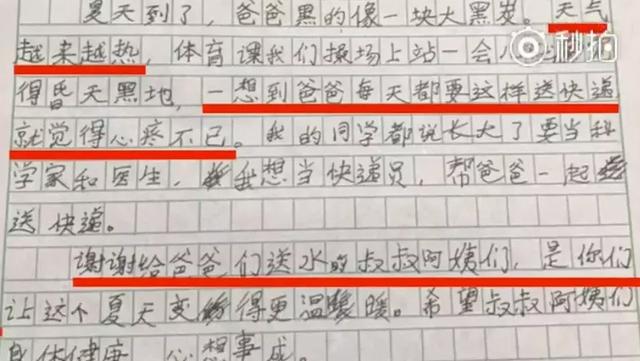 夏天到了，爸爸黑的像一块大黑炭。天气
越来越热，体育课我们操场上站一会
秒拍
得昏天黑地，一想到爸爸每天都要这样送快递
就觉得心疼不已。我的同学都说长大了要当科
学家和医生，我想当快递员，帮爸爸一起
送快递。
谢谢给爸爸们送水的叔叔阿姨们，是你们
让这个夏天变得更温暖。希望叔叔阿姨们
身体健康，心想事成。